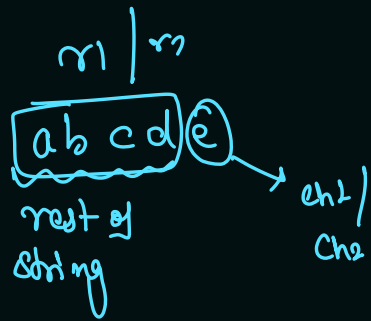 r1 | r2
abcd e
rest of
string
ch1 |
ch2